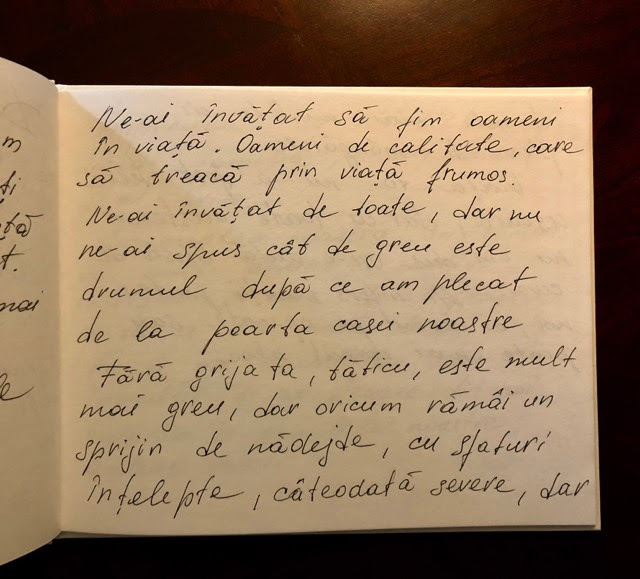 m
ți
t.
mai
Ne-ai învățat să fim oameni
în viață. Oameni de calitate, care
să treacă prin viață frumos.
Ne-ai învățat de toate, dar nu
ne-ai spus cât de greu este
drumul după ce am plecat
de la poarta casei noastre
Fără grija ta, tăticu, este mult
mai greu, dar oricum rămâi un
sprijin de nădejde, cu sfaturi
înțelepte, câteodată severe, dar